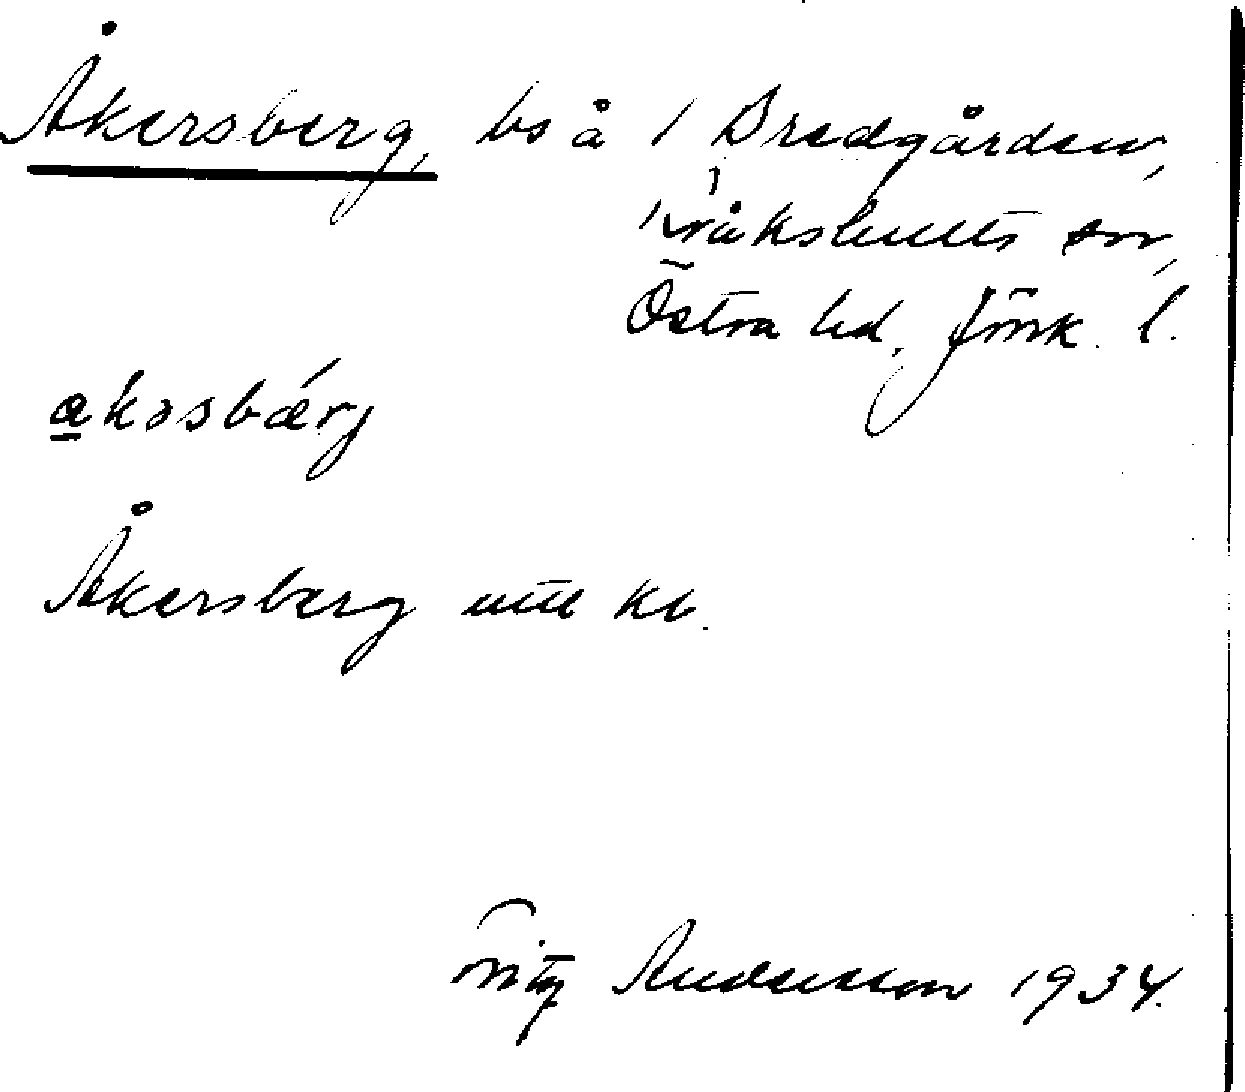 Åkersberg, bs å 1 Bredgården,
Kråkshults sn,
Östra hd, Jönk. l.
a̲kəsbǽrj
Åkersberg utt kb.
Fritz Andersson 1934.